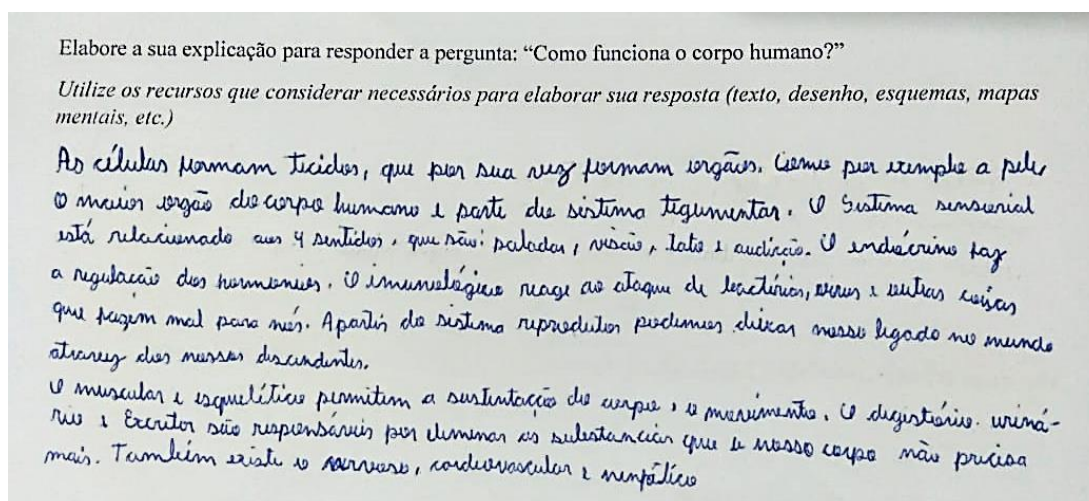 Elabore a sua explicação para responder a pergunta: “Como funciona o corpo humano?”
Utilize os recursos que considerar necessários para elaborar sua resposta (texto, desenho, esquemas, mapas
mentais, etc.)
As células formam ticidos, que por sua vez formam orgãos. Como por exemplo a pele,
o maior orgão do corpo humano e parte do sistema tegumentar. O Sistema sensorial
está relacionado aos 4 sentidos, que são: paladar, visão, tato e audição. O endócrino faz
a regulação dos hormonios. O imunologico reage ao ataque de bactérias, virus e outras coisas
que fazem mal para nós. Apartir do sistema reprodutor podemos deixar nosso legado no mundo
atravez dos nossos descendentes.
O muscular e esquelético permitem a sustentação do corpo, o movimento. O digestório. uriná-
rio e Excretor são responsáveis por eliminar as substancias que o nosso corpo não precisa
mais. Também existe o nervoso, cardiovascular e ninfático